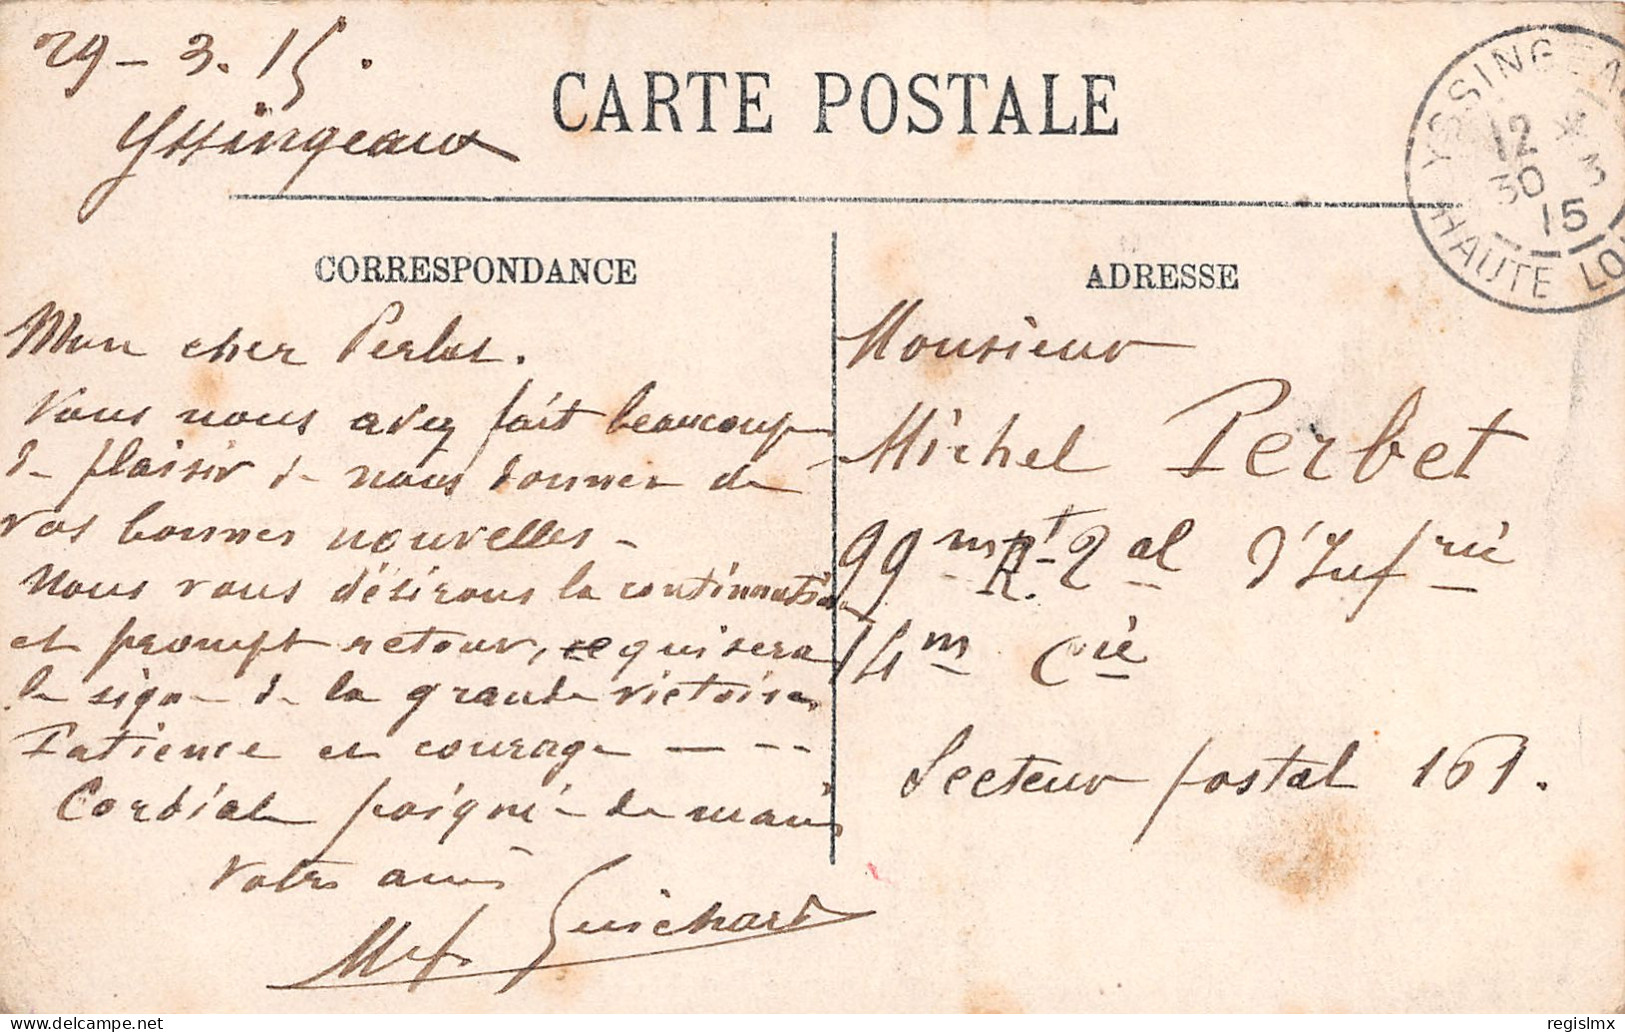 29 - 3. 15.
Yssingeaux
CARTE POSTALE
YSSINGEAU
12 * 3
30
15
HAUTE LOI
CORRESPONDANCE
Mon cher Perbet.
Vous nous avez fait beaucoup
de plaisir de nous donner de
vos bonnes nouvelles -
Nous vous désirons la continuation
et prompt retour, ce qui sera
le signe de la grande victoire
Patience et courage - - -
Cordiale poignée de main
Votre ami
Guichard
ADRESSE
Monsieur
Michel Perbet
99me Rt 2al d'Infrie
14m Cie
Secteur postal 161.
regislmx